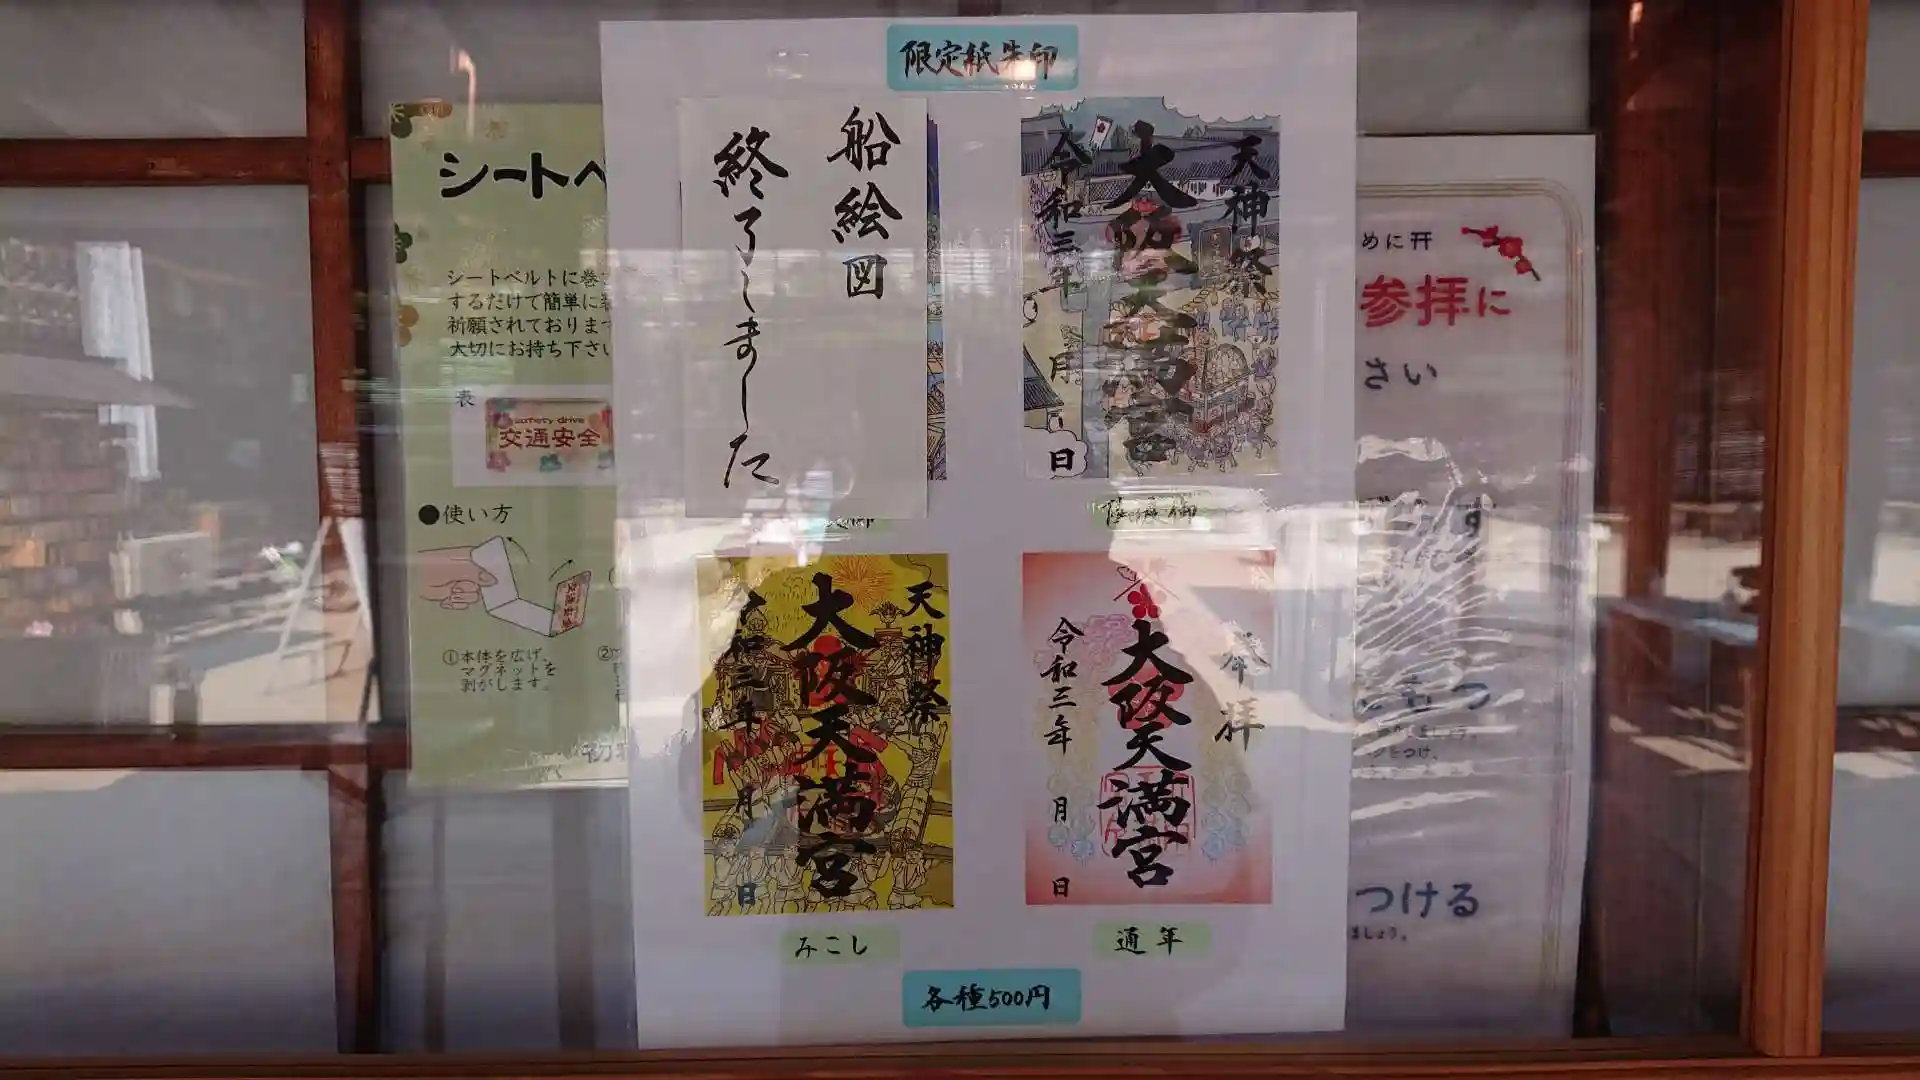 限定紙朱印
船絵図
終了しました
天神祭
大阪天満宮
令和三年
月
日
天神祭
大阪天満宮
令和三年
月
日
みこし
奉拝
大阪天満宮
令和三年
月
日
通年
各種500円
シートベ
シートベルトに巻
するだけで簡単に
祈願されておりま
大切にお持ち下さい
表
safety drive
交通安全
●使い方
①本体を広げ、
マグネットを
剥がします。
②
めに
参拝に
さい
す
つ
をつけ、
つける
ましょう。